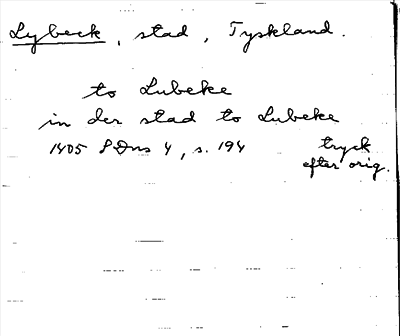 Lybeck, stad, Tyskland.
to Lubeke
in der stad to Lubeke
1405 SDns 4, s. 194 tryck
efter orig.